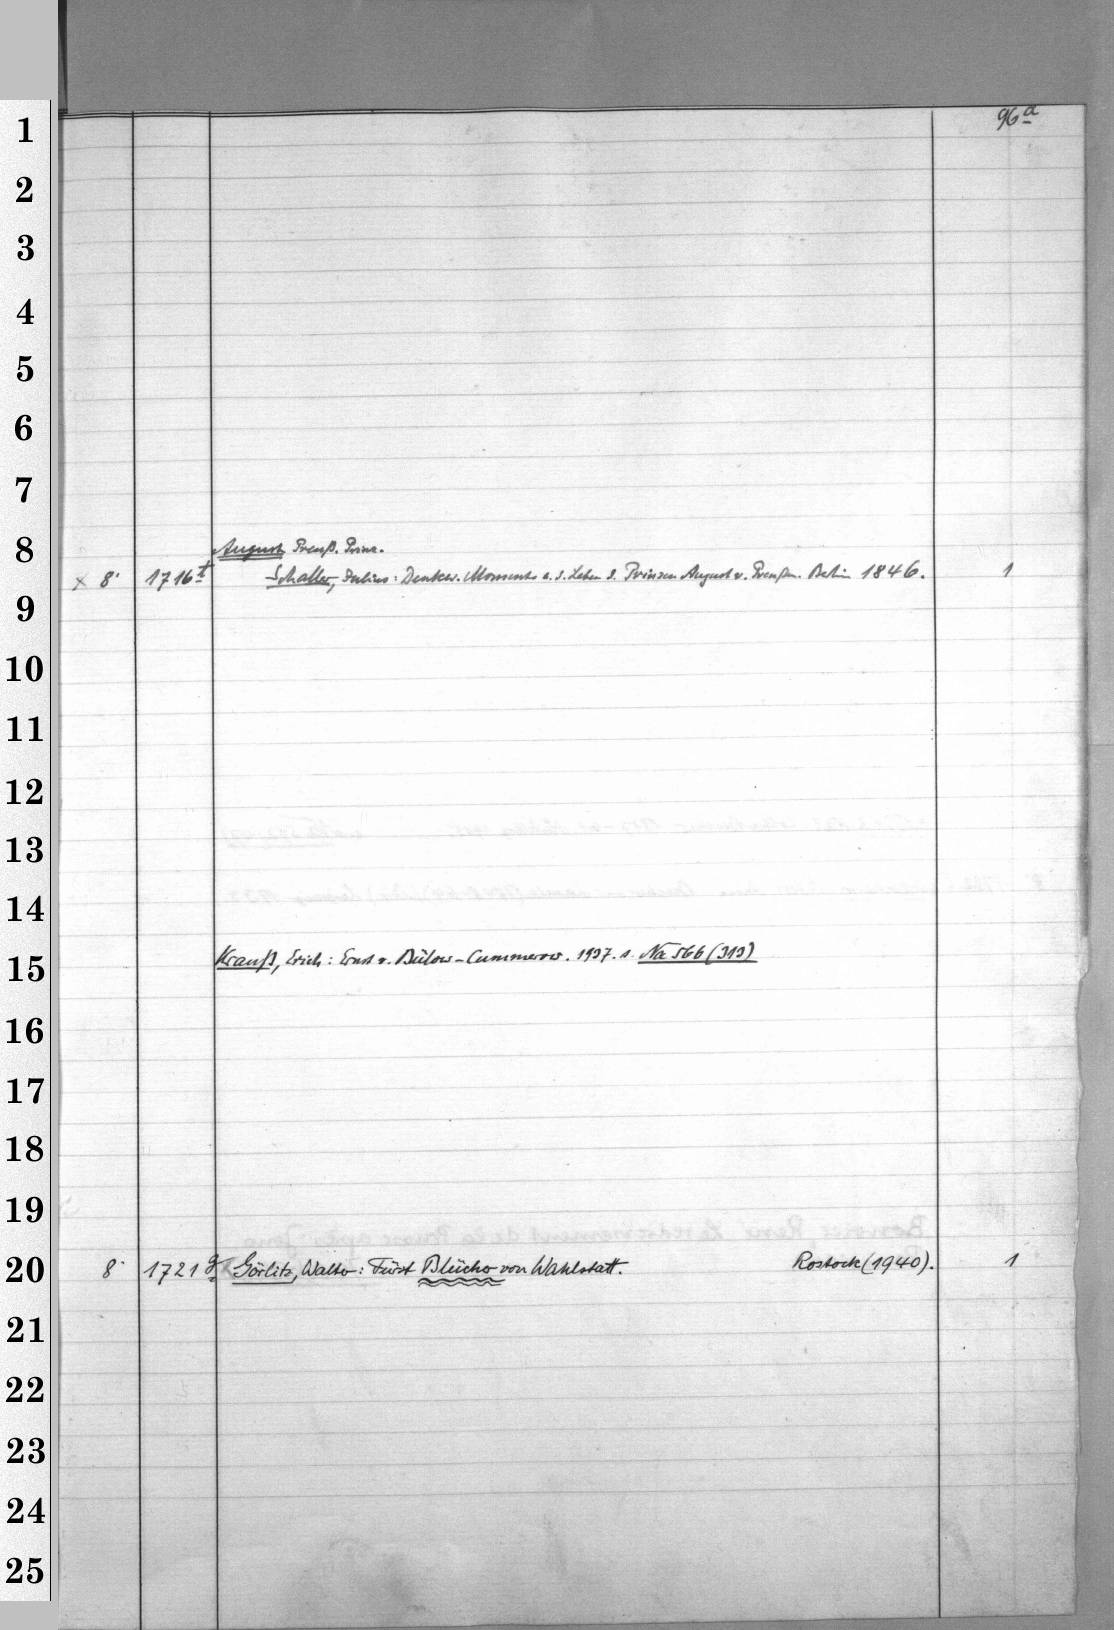 96 a
1
2
3
4
5
6
7
8
August Preuß. Prinz.
x 8° 1716 t Schaller, Julius: Denkw. Momente a. d. Leben d. Prinzen August v. Preußen. Berlin 1846. 1
9
10
11
12
13
14
15 Krauß, Erich: Ernst v. Bülow-Cummerow. 1937. s. Na 566 (313)
16
17
18
19
20 8° 1721 g Görlitz, Walter: Fürst Blücher von Wahlstatt. Rostock (1940). 1
21
22
23
24
25